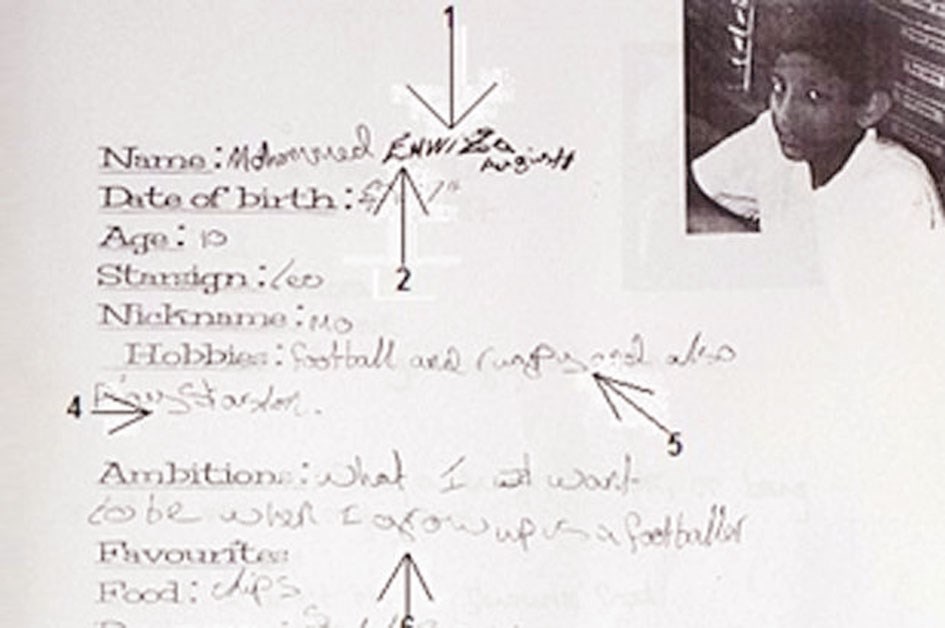 1
Name: Mohammed
August
Date of birth:
2
Age: 10
Starsign: Leo
Nickname: Mo
Hobbies: football and and also
4
5
Ambitions: what I want
to be when I grow up is a footballer
Favourite:
Food: chips
6